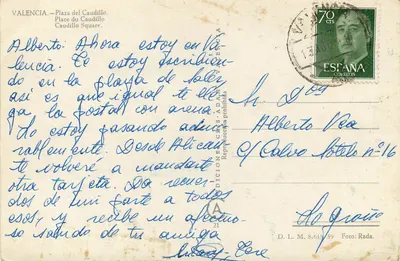 VALENCIA.-Plaza del Caudillo.
Place du Caudillo
Caudillo Squaer.
Alberto: Ahora estoy en Va-
lencia. Te estoy escribien-
do en la playa de Saler
así es que igual te lle-
ga la postal con arena.
Lo estoy pasando admi-
rablemente. Desde Alican-
te volveré a mandarte
otra tarjeta. Da recuer-
dos de mi parte a todos
esos, y recibe un afectuo-
so saludo de tu amiga
Tere
Reproducción prohibida
70 CTS
ESPAÑA
CORREOS
Sr. Dn
Alberto Vea
C/ Calvo Sotelo nº 16
Logroño
D. L. M.
Foto: Rada.